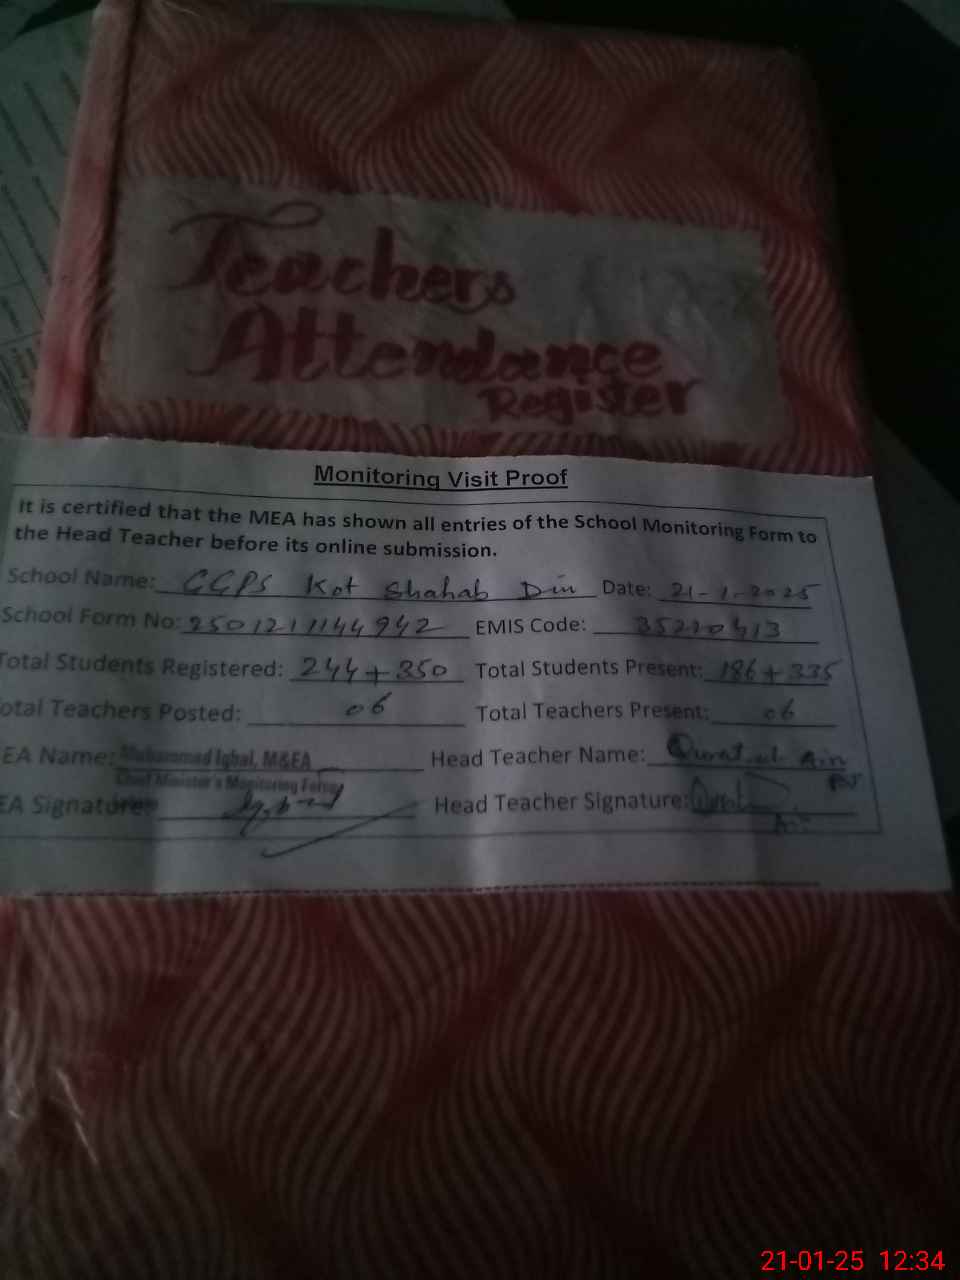 Teachers
Attendance
Register
Monitoring Visit Proof
It is certified that the MEA has shown all entries of the School Monitoring Form to
the Head Teacher before its online submission.
School Name: GGPS Kot Shahab Din Date: 21-1-2025
School Form No: 2501211144942 EMIS Code: 35210413
Total Students Registered: 244+350 Total Students Present: 186+335
otal Teachers Posted: 06 Total Teachers Present: 06
EA Name: Muhammad Iqbal, M&EA Head Teacher Name: Qurat.ul Ain
Chief Minister's Monitoring Force
EA Signature: Head Teacher Signature: Qurat
Ain
21-01-25 12:34